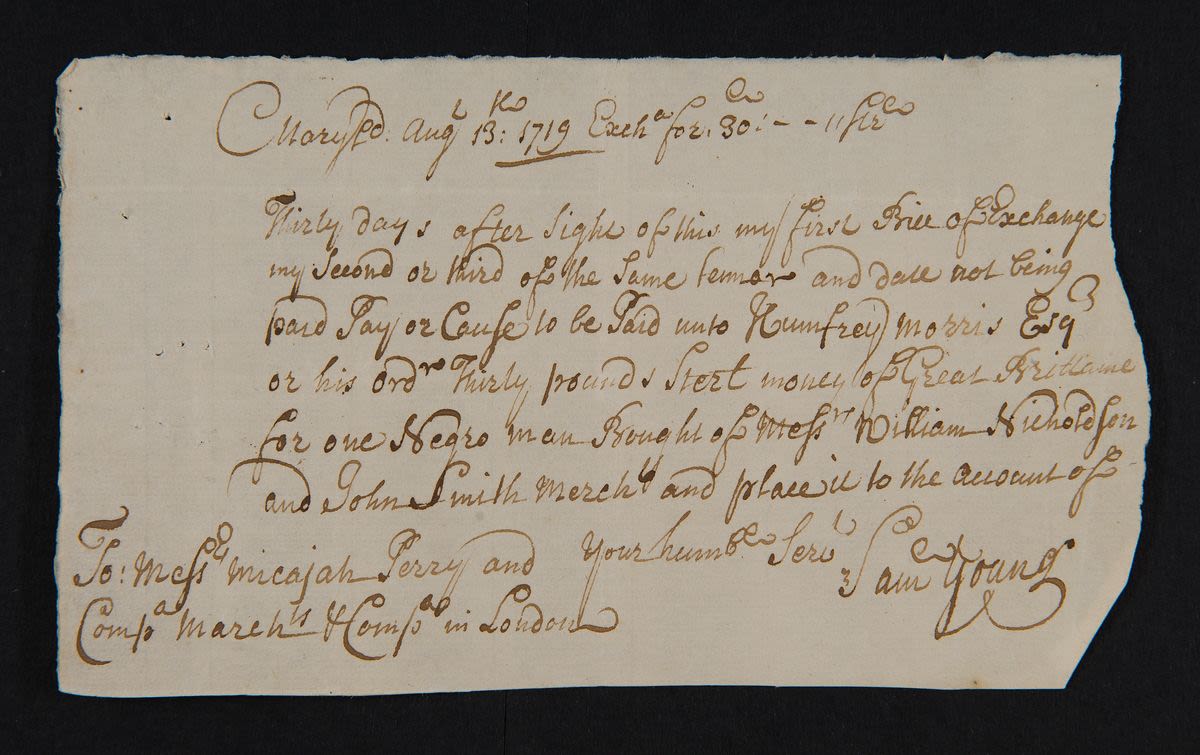 Maryld. Augt 13th: 1719 Excha for: 30: - - " Strle
Thirty days after Sight of this my first Bill of Exchange
my Second or third of the Same tennor and date not being
paid Pay or Cause to be Paid unto Humfrey Morris Esqr
or his ordr Thirty pounds Sterl money of Great Brittaine
for one Negro man Bought of Messrs William Nicholdson
and John Smith Merchts and place it to the account of
Your humble Servt
Saml Young
To: Messrs Micajah Perry and
Compa Marchts & Compa in London